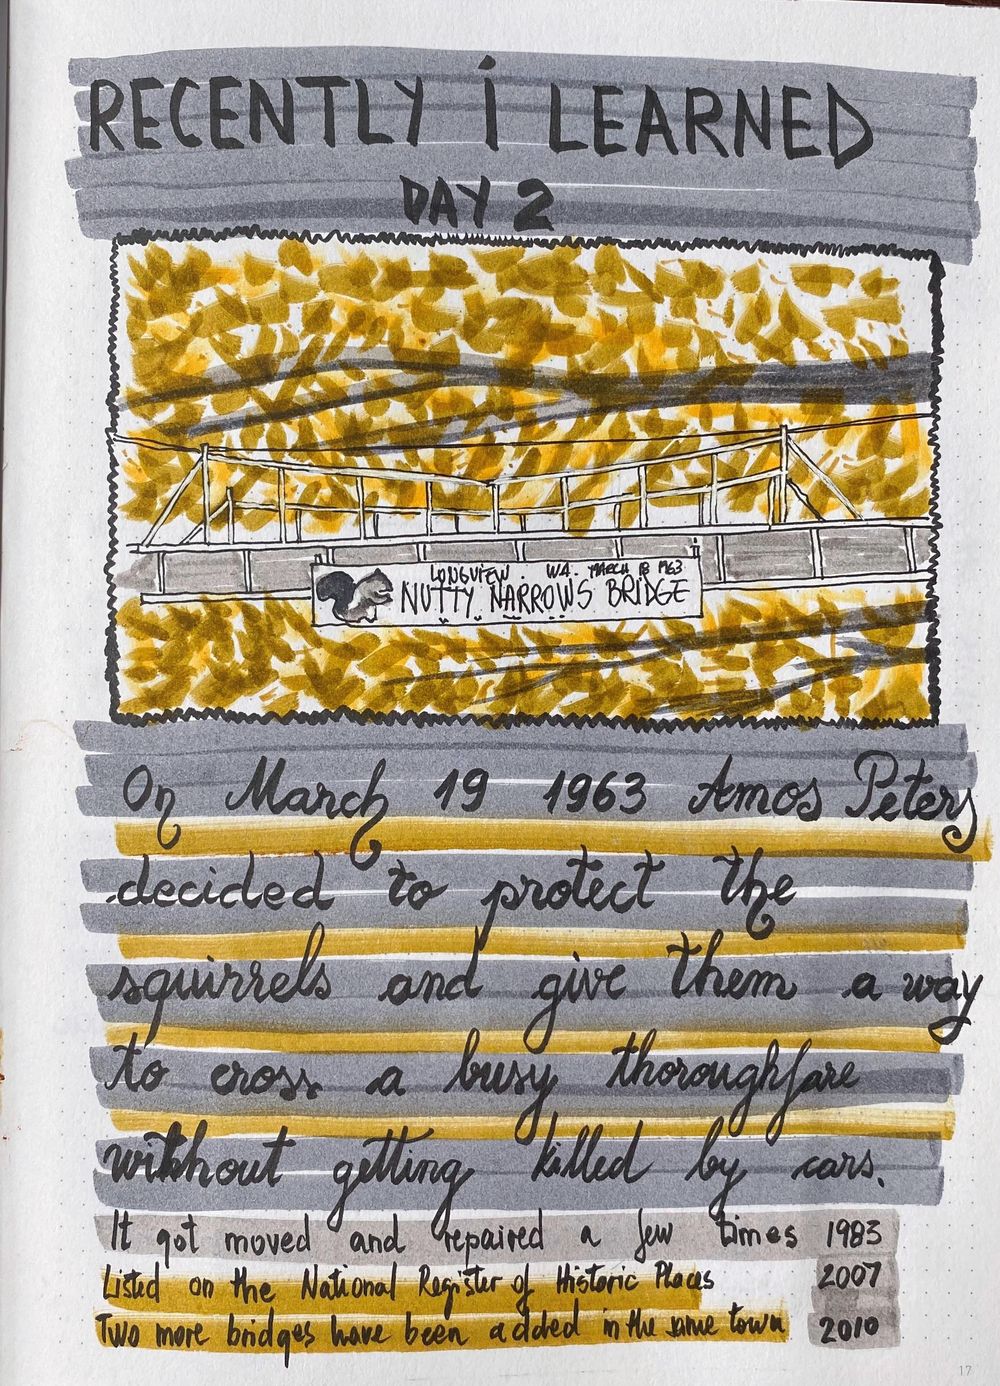 RECENTLY i LEARNED
DAY 2
LONGVIEW. WA. MARCH 19 1963
NUTTY NARROWS BRIDGE
On March 19 1963 Amos Peters
decided to protect the
squirrels and give them a way
to cross a busy thoroughfare
without getting killed by cars.
It got moved and repaired a few times 1983
Listed on the National Register of Historic Places 2007
Two more bridges have been added in the same town 2010
17